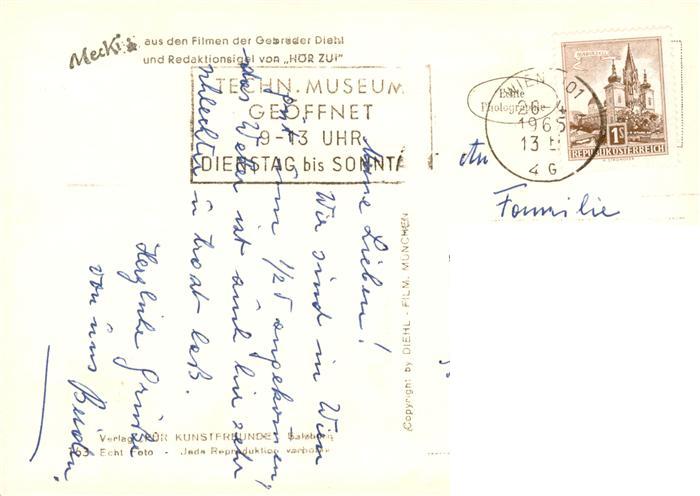 Mecki
aus den Filmen der Gebrüder Diehl
und Redaktionsigel von „HÖR ZU!"
TECHN. MUSEUM
GEÖFFNET
9-13 UHR
DIENSTAG bis SONNTA
WIEN 101
26.
1965
13
4 G
Echte
Photographie
MARIAZELL
1S
REPUBLIK ÖSTERREICH
An
Familie
Meine Lieben!
Wir sind in Wien
gut um 1/2 5 angekommen,
das Wetter ist auch hier sehr
schlecht u. trost los.
Herzliche Grüße
von uns Beiden.
Copyright by DIEHL - FILM, MÜNCHEN
Verlag FÜR KUNSTFREUNDE, Salzburg
Echt Foto - Jede Reproduktion verboten